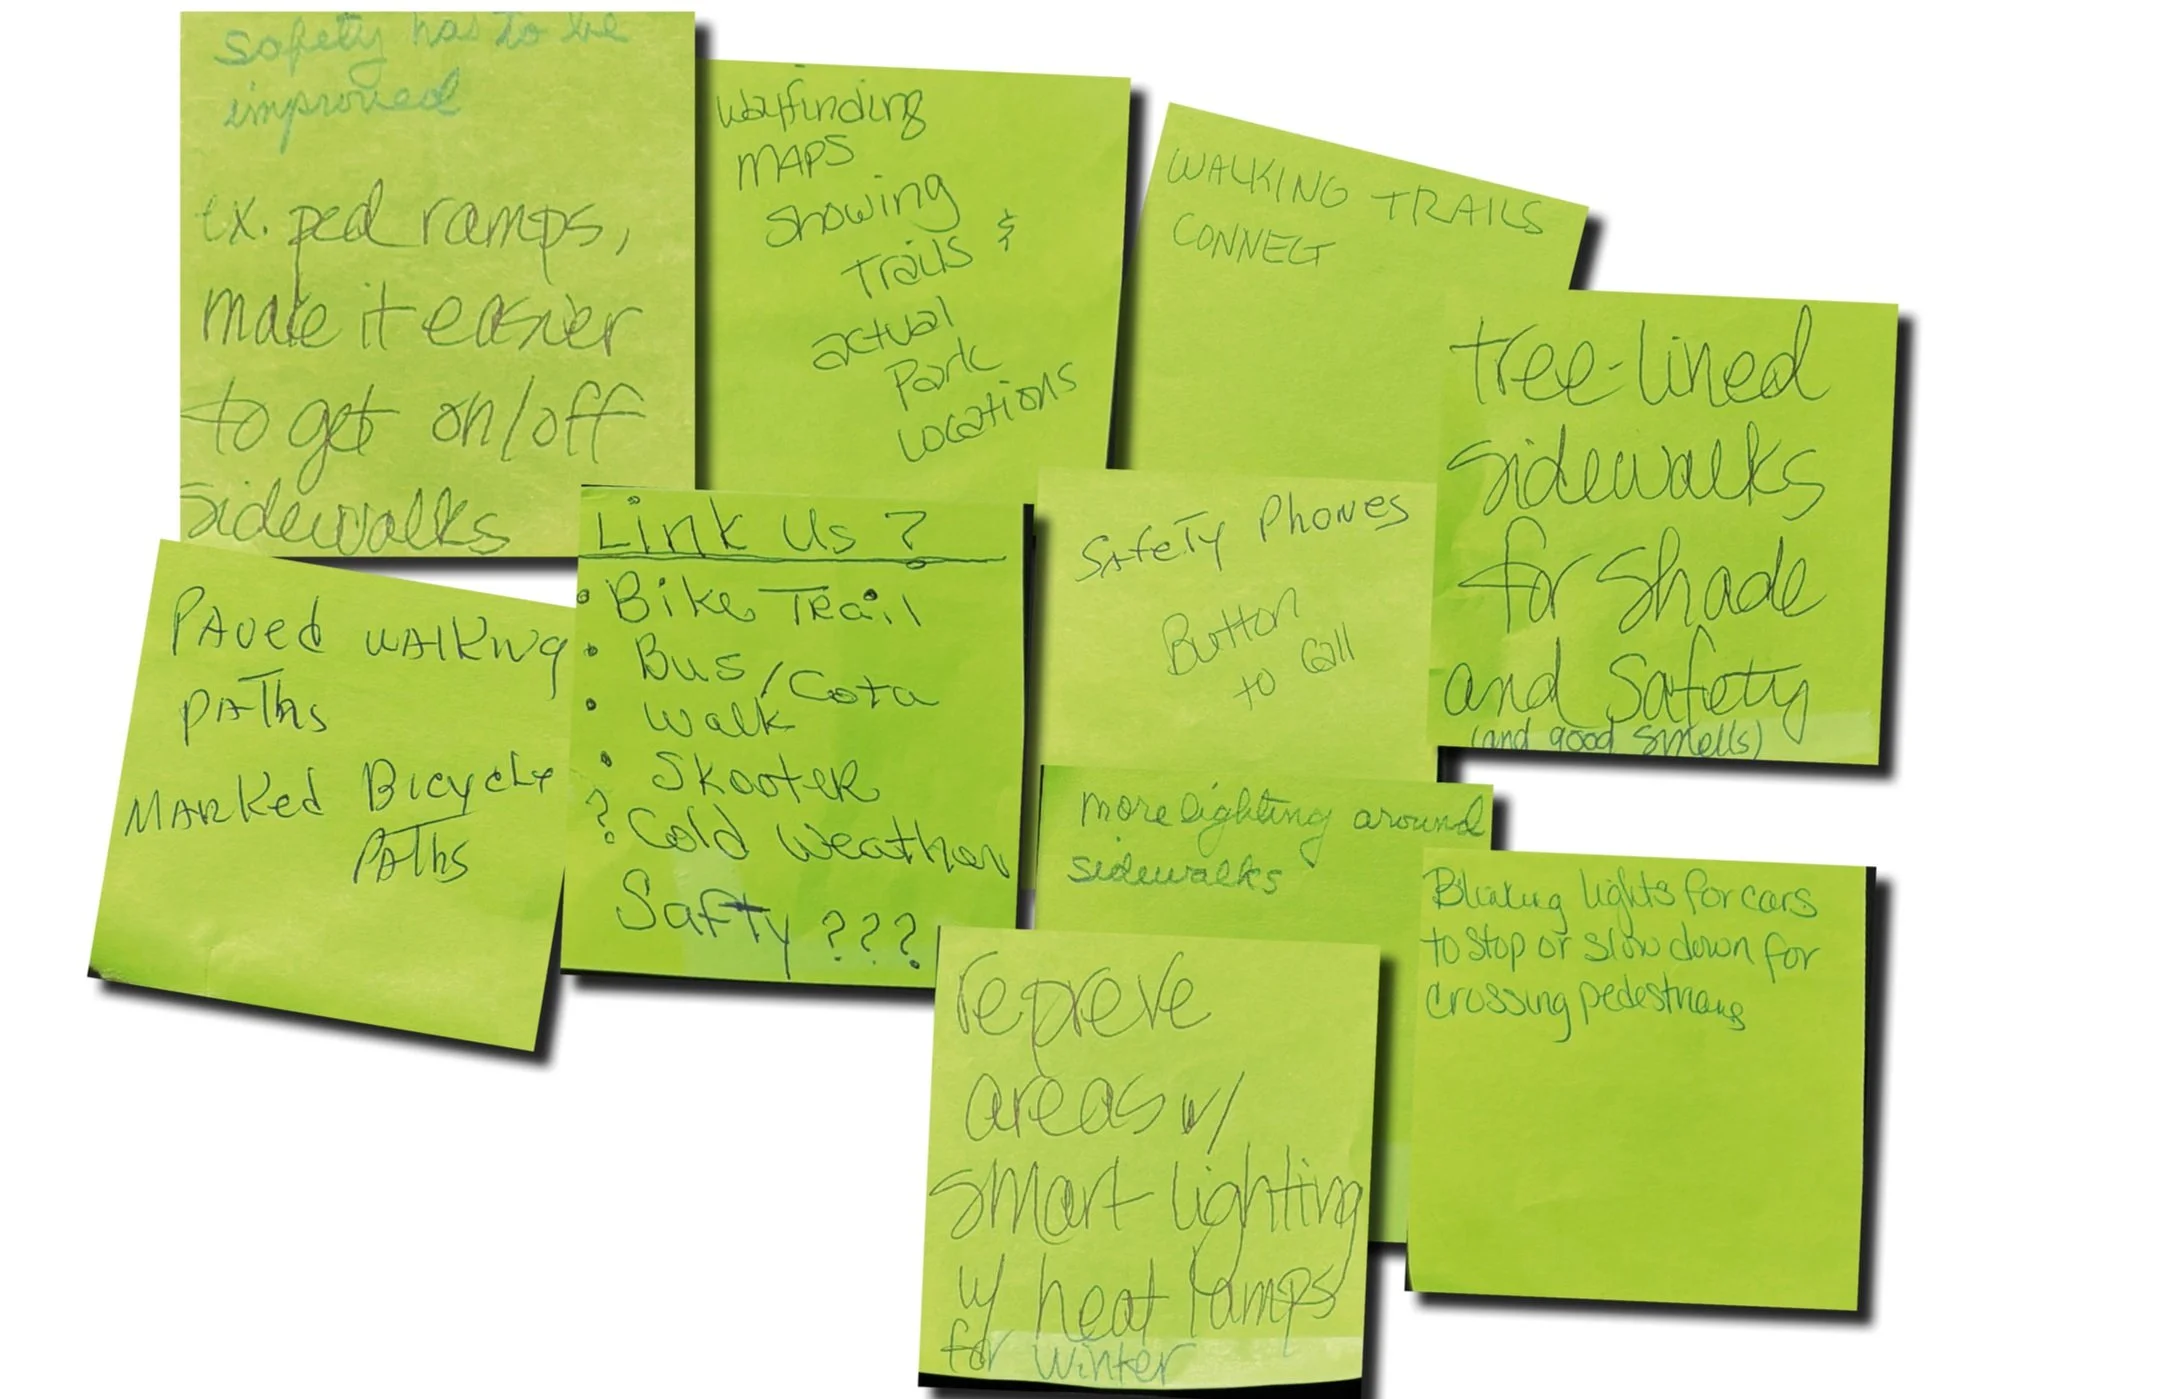 Safety has to be
improved
ex. ped ramps,
make it easier
to get on/off
sidewalks
Wayfinding
MAPS
showing
Trails &
actual
Park
Locations
WALKING TRAILS
CONNECT
tree-lined
sidewalks
for shade
and safety
(and good smells)
Link Us ?
• Bike Trail
• Bus/Cota
• Walk
• Skooter
? Cold Weather
Safty ???
Safety Phones
Button
to Call
Paved walking
paths
Marked Bicycle
Paths
more lighting around
sidewalks
Blinking lights for cars
to stop or slow down for
crossing pedestrians
repreve
areas w/
smart lighting
w/ heat lamps
for winter